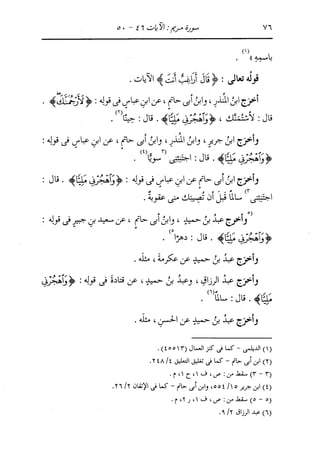 ٧٦ سورة مريم : الآيات ٤٦ - ٥٠
باسمه»(١) .
قولُه تعالى : ﴿قَالَ أَرَاغِبٌ أَنتَ﴾ الآيات .
أخرَج ابنُ المنذرِ ، وابنُ أبى حاتمٍ ، عن ابنِ عباسٍ فى قولِه : ﴿لَأَرْجُمَنَّكَ﴾ .
قال : لأَشْتُمَنَّك ، ﴿وَاهْجُرْنِي مَلِيًّا﴾ . قال : حينًا(٢) .
وأخرَج ابنُ جريرٍ ، وابنُ المنذرِ ، وابنُ أبى حاتمٍ ، عن ابنِ عباسٍ فى قولِه :
﴿وَاهْجُرْنِي مَلِيًّا﴾ . قال : اجتنِبْنى (٣) سويًّا(٤) .
وأخرَج ابنُ أبى حاتمٍ عن ابنِ عباسٍ فى قولِه : ﴿وَاهْجُرْنِي مَلِيًّا﴾ . قال :
اجتنِبْنى ٣) سالمًا قبلَ أن تُصِيبَك منى عقوبةٌ .
(٥ وأخرَج عبدُ بنُ حميدٍ ، وابنُ أبى حاتمٍ ، عن سعيدِ بنِ جبيرٍ فى قولِه :
﴿وَاهْجُرْنِي مَلِيًّا﴾ . قال : دهرًا ٥) .
وأخرَج عبدُ بنُ حميدٍ عن عكرمةَ ، مثلَه .
وأخرَج عبدُ الرزاقِ ، وعبدُ بنُ حميدٍ ، عن قتادةَ فى قولِه : ﴿وَاهْجُرْنِي
مَلِيًّا﴾ . قال : سالمًا(٦) .
وأخرَج عبدُ بنُ حميدٍ عن الحسنِ ، مثلَه .
(١) الديلمى - كما فى كنز العمال (٤٥٥١٣) .
(٢) ابن أبى حاتم - كما فى تغليق التعليق ٢٤٨/٤ .
(٣ - ٣) سقط من : ص ، ف ١ ، ح ١ ، م .
(٤) ابن جرير ٥٥٤/١٥ ، وابن أبى حاتم - كما فى الإتقان ٢٦/٢ .
(٥ - ٥) سقط من : ص ، ف ١ ، ر ٢ ، م .
(٦) عبد الرزاق ٩/٢ .